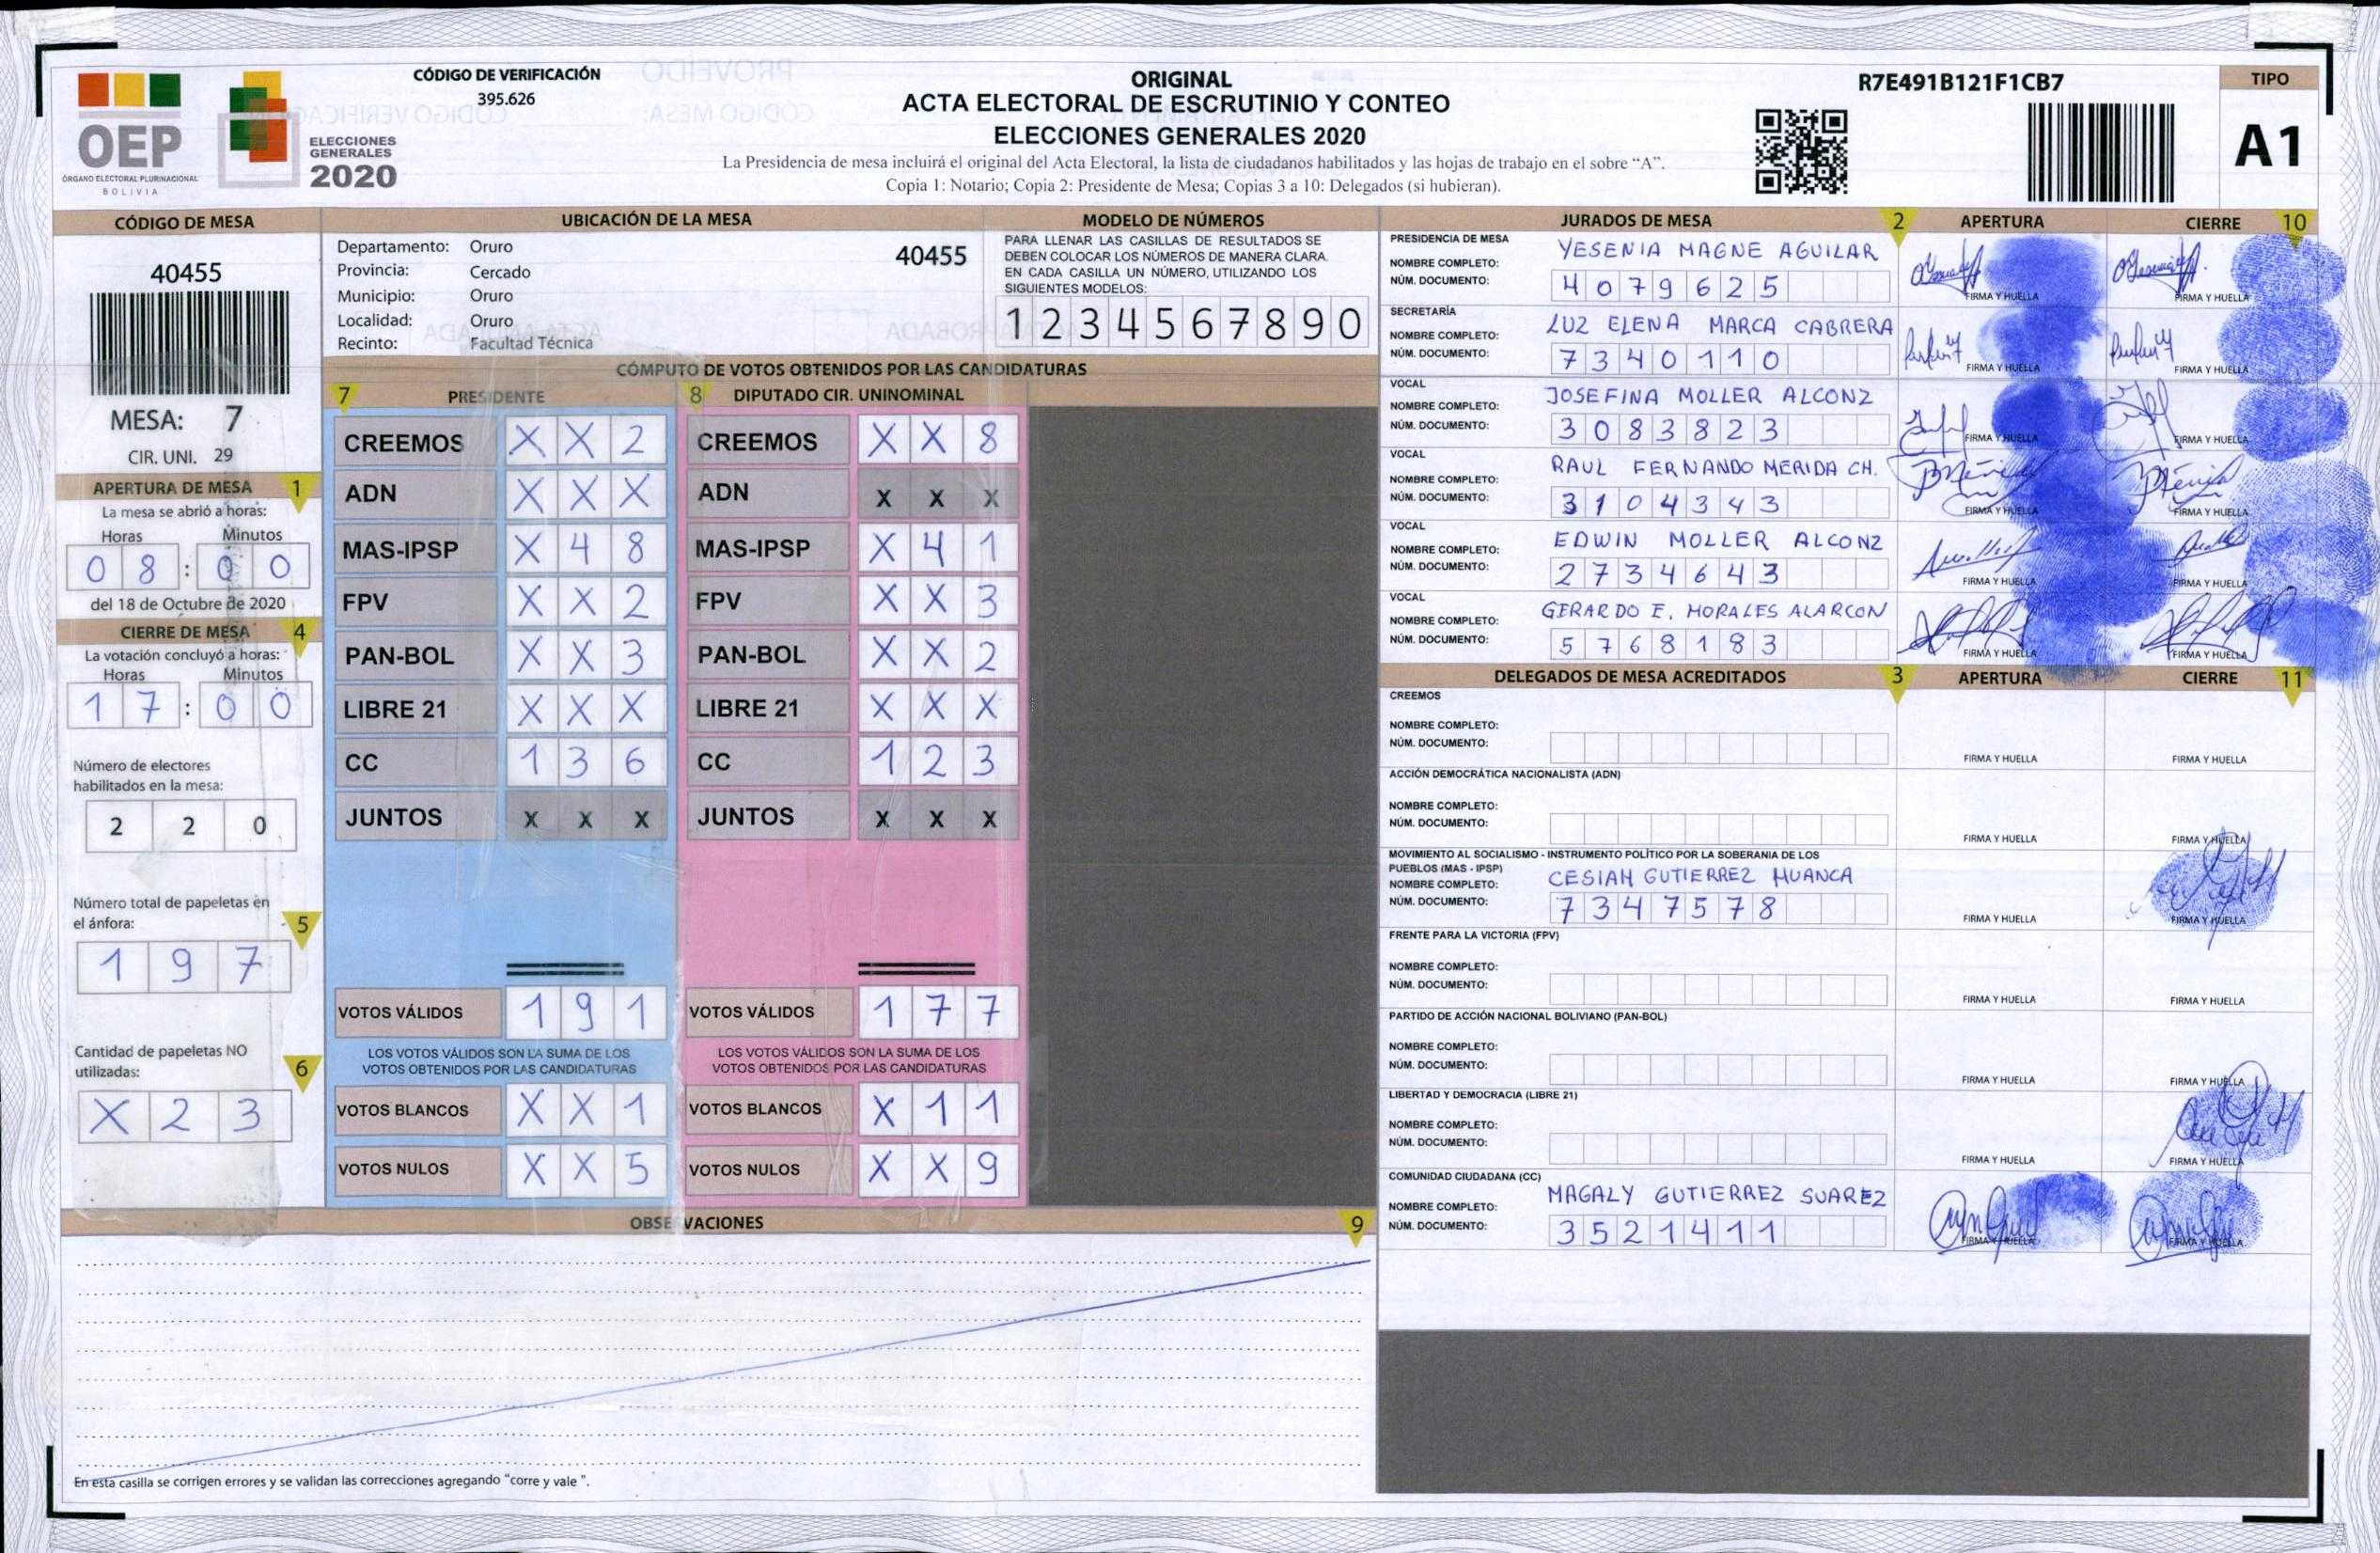 OEP
ÓRGANO ELECTORAL PLURINACIONAL
BOLIVIA
ELECCIONES
GENERALES
2020
CÓDIGO DE VERIFICACIÓN
395.626
ORIGINAL
ACTA ELECTORAL DE ESCRUTINIO Y CONTEO
ELECCIONES GENERALES 2020
La Presidencia de mesa incluirá el original del Acta Electoral, la lista de ciudadanos habilitados y las hojas de trabajo en el sobre “A”.
Copia 1: Notario; Copia 2: Presidente de Mesa; Copias 3 a 10: Delegados (si hubieran).
R7E491B121F1CB7
TIPO
A1
CÓDIGO DE MESA
40455
MESA: 7
CIR. UNI. 29
APERTURA DE MESA 1
La mesa se abrió a horas:
Horas Minutos
0 8 : 0 0
del 18 de Octubre de 2020
CIERRE DE MESA 4
La votación concluyó a horas:
Horas Minutos
1 7 : 0 0
Número de electores
habilitados en la mesa:
2 2 0
Número total de papeletas en
el ánfora: 5
1 9 7
Cantidad de papeletas NO
utilizadas: 6
X 2 3
UBICACIÓN DE LA MESA
Departamento: Oruro
Provincia: Cercado
Municipio: Oruro
Localidad: Oruro
Recinto: Facultad Técnica
40455
MODELO DE NÚMEROS
PARA LLENAR LAS CASILLAS DE RESULTADOS SE
DEBEN COLOCAR LOS NÚMEROS DE MANERA CLARA.
EN CADA CASILLA UN NÚMERO, UTILIZANDO LOS
SIGUIENTES MODELOS:
1 2 3 4 5 6 7 8 9 0
CÓMPUTO DE VOTOS OBTENIDOS POR LAS CANDIDATURAS
7 PRESIDENTE
CREEMOS X X 2
ADN X X X
MAS-IPSP X 4 8
FPV X X 2
PAN-BOL X X 3
LIBRE 21 X X X
CC 1 3 6
JUNTOS X X X
VOTOS VÁLIDOS 1 9 1
LOS VOTOS VÁLIDOS SON LA SUMA DE LOS
VOTOS OBTENIDOS POR LAS CANDIDATURAS
VOTOS BLANCOS X X 1
VOTOS NULOS X X 5
8 DIPUTADO CIR. UNINOMINAL
CREEMOS X X 8
ADN X X X
MAS-IPSP X 4 1
FPV X X 3
PAN-BOL X X 2
LIBRE 21 X X X
CC 1 2 3
JUNTOS X X X
VOTOS VÁLIDOS 1 7 7
LOS VOTOS VÁLIDOS SON LA SUMA DE LOS
VOTOS OBTENIDOS POR LAS CANDIDATURAS
VOTOS BLANCOS X 1 1
VOTOS NULOS X X 9
OBSERVACIONES 9
En esta casilla se corrigen errores y se validan las correcciones agregando "corre y vale ".
JURADOS DE MESA 2 APERTURA CIERRE 10
PRESIDENCIA DE MESA
NOMBRE COMPLETO: YESENIA MAGNE AGUILAR
NÚM. DOCUMENTO: 4 0 7 9 6 2 5
FIRMA Y HUELLA FIRMA Y HUELLA
SECRETARÍA
NOMBRE COMPLETO: LUZ ELENA MARCA CABRERA
NÚM. DOCUMENTO: 7 3 4 0 1 1 0
FIRMA Y HUELLA FIRMA Y HUELLA
VOCAL
NOMBRE COMPLETO: JOSEFINA MOLLER ALCONZ
NÚM. DOCUMENTO: 3 0 8 3 8 2 3
FIRMA Y HUELLA FIRMA Y HUELLA
VOCAL
NOMBRE COMPLETO: RAUL FERNANDO MERIDA CH.
NÚM. DOCUMENTO: 3 1 0 4 3 4 3
FIRMA Y HUELLA FIRMA Y HUELLA
VOCAL
NOMBRE COMPLETO: EDWIN MOLLER ALCONZ
NÚM. DOCUMENTO: 2 7 3 4 6 4 3
FIRMA Y HUELLA FIRMA Y HUELLA
VOCAL
NOMBRE COMPLETO: GERARDO E. MORALES ALARCON
NÚM. DOCUMENTO: 5 7 6 8 1 8 3
FIRMA Y HUELLA FIRMA Y HUELLA
DELEGADOS DE MESA ACREDITADOS 3 APERTURA CIERRE 11
CREEMOS
NOMBRE COMPLETO:
NÚM. DOCUMENTO:
FIRMA Y HUELLA FIRMA Y HUELLA
ACCIÓN DEMOCRÁTICA NACIONALISTA (ADN)
NOMBRE COMPLETO:
NÚM. DOCUMENTO:
FIRMA Y HUELLA FIRMA Y HUELLA
MOVIMIENTO AL SOCIALISMO - INSTRUMENTO POLÍTICO POR LA SOBERANIA DE LOS
PUEBLOS (MAS - IPSP)
NOMBRE COMPLETO: CESIAH GUTIERREZ HUANCA
NÚM. DOCUMENTO: 7 3 4 7 5 7 8
FIRMA Y HUELLA FIRMA Y HUELLA
FRENTE PARA LA VICTORIA (FPV)
NOMBRE COMPLETO:
NÚM. DOCUMENTO:
FIRMA Y HUELLA FIRMA Y HUELLA
PARTIDO DE ACCIÓN NACIONAL BOLIVIANO (PAN-BOL)
NOMBRE COMPLETO:
NÚM. DOCUMENTO:
FIRMA Y HUELLA FIRMA Y HUELLA
LIBERTAD Y DEMOCRACIA (LIBRE 21)
NOMBRE COMPLETO:
NÚM. DOCUMENTO:
FIRMA Y HUELLA FIRMA Y HUELLA
COMUNIDAD CIUDADANA (CC)
NOMBRE COMPLETO: MAGALY GUTIERREZ SUAREZ
NÚM. DOCUMENTO: 3 5 2 1 4 1 1
FIRMA Y HUELLA FIRMA Y HUELLA